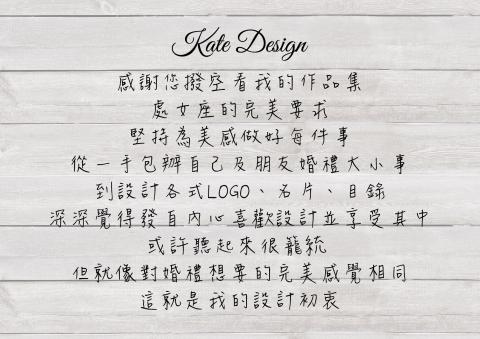 Kate Design
感謝您撥空看我的作品集
處女座的完美要求
堅持為美感做好每件事
從一手包辦自己及朋友婚禮大小事
到設計各式LOGO、名片、目錄
深深覺得發自內心喜歡設計並享受其中
或許聽起來很籠統
但就像對婚禮想要的完美感覺相同
這就是我的設計初衷